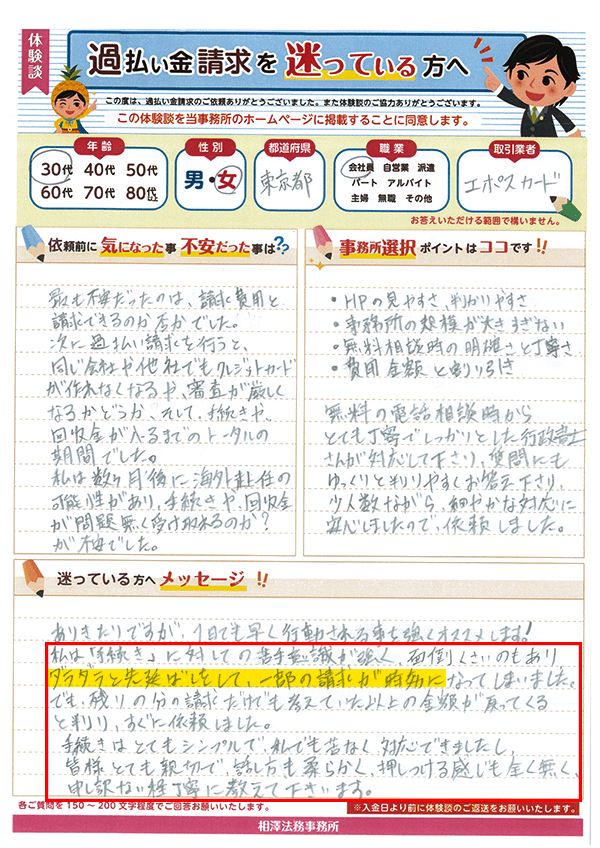 体験談
過払い金請求を迷っている方へ
この度は、過払い金請求のご依頼ありがとうございました。また体験談のご協力ありがとうございます。
この体験談を当事務所のホームページに掲載することに同意します。
年齢
30代 40代 50代
60代 70代 80代以上
性別
男・女
都道府県
東京都
職業
会社員 自営業 派遣
パート アルバイト
主婦 無職 その他
取引業者
エポスカード
お答えいただける範囲で構いません。
依頼前に気になった事 不安だった事は??
最も不安だったのは、請求費用と
請求できるのか否かでした。
次に過払い請求を行うと、
同じ会社や他社でもクレジットカード
が作れなくなるや、審査が厳しく
なるかどうか、そして、手続きや、
回収金が入るまでのトータルの
期間でした。
私は数ヶ月後に海外赴任の
可能性があり、手続きや、回収金
が問題無く受け取れるのか?
が不安でした。
事務所選択ポイントはココです!!
・HPの見やすさ、判かりやすさ
・事務所の規模が大きすぎない
・無料相談時の明確さと丁寧さ
・費用金額と割り引き
無料の電話相談時から
とても丁寧でしっかりとした行政書士
さんが対応して下さり、質問にも
ゆっくりと判りやすくお答え下さり、
少人数ながら、細やかな対応に
安心しましたので、依頼しました。
迷っている方へメッセージ!!
ありきたりですが、1日でも早く行動される事を強くオススメします!
私は「手続き」に対しての苦手意識が強く、面倒くさいのもあり
ダラダラと先延ばしをして、一部の請求が時効になってしまいました。
でも、残りの分の請求だけでも考えていた以上の金額が戻ってくる
と判り、すぐに依頼しました。
手続きはとてもシンプルで、私でも苦なく対応できましたし、
皆様とても親切で、話し方も柔らかく、押しつける感じも全く無く、
申し訳ない程丁寧に教えて下さいます。
各ご質問を150〜200文字程度でご回答お願いいたします。
※入金日より前に体験談のご返送をお願いいたします。
相澤法務事務所